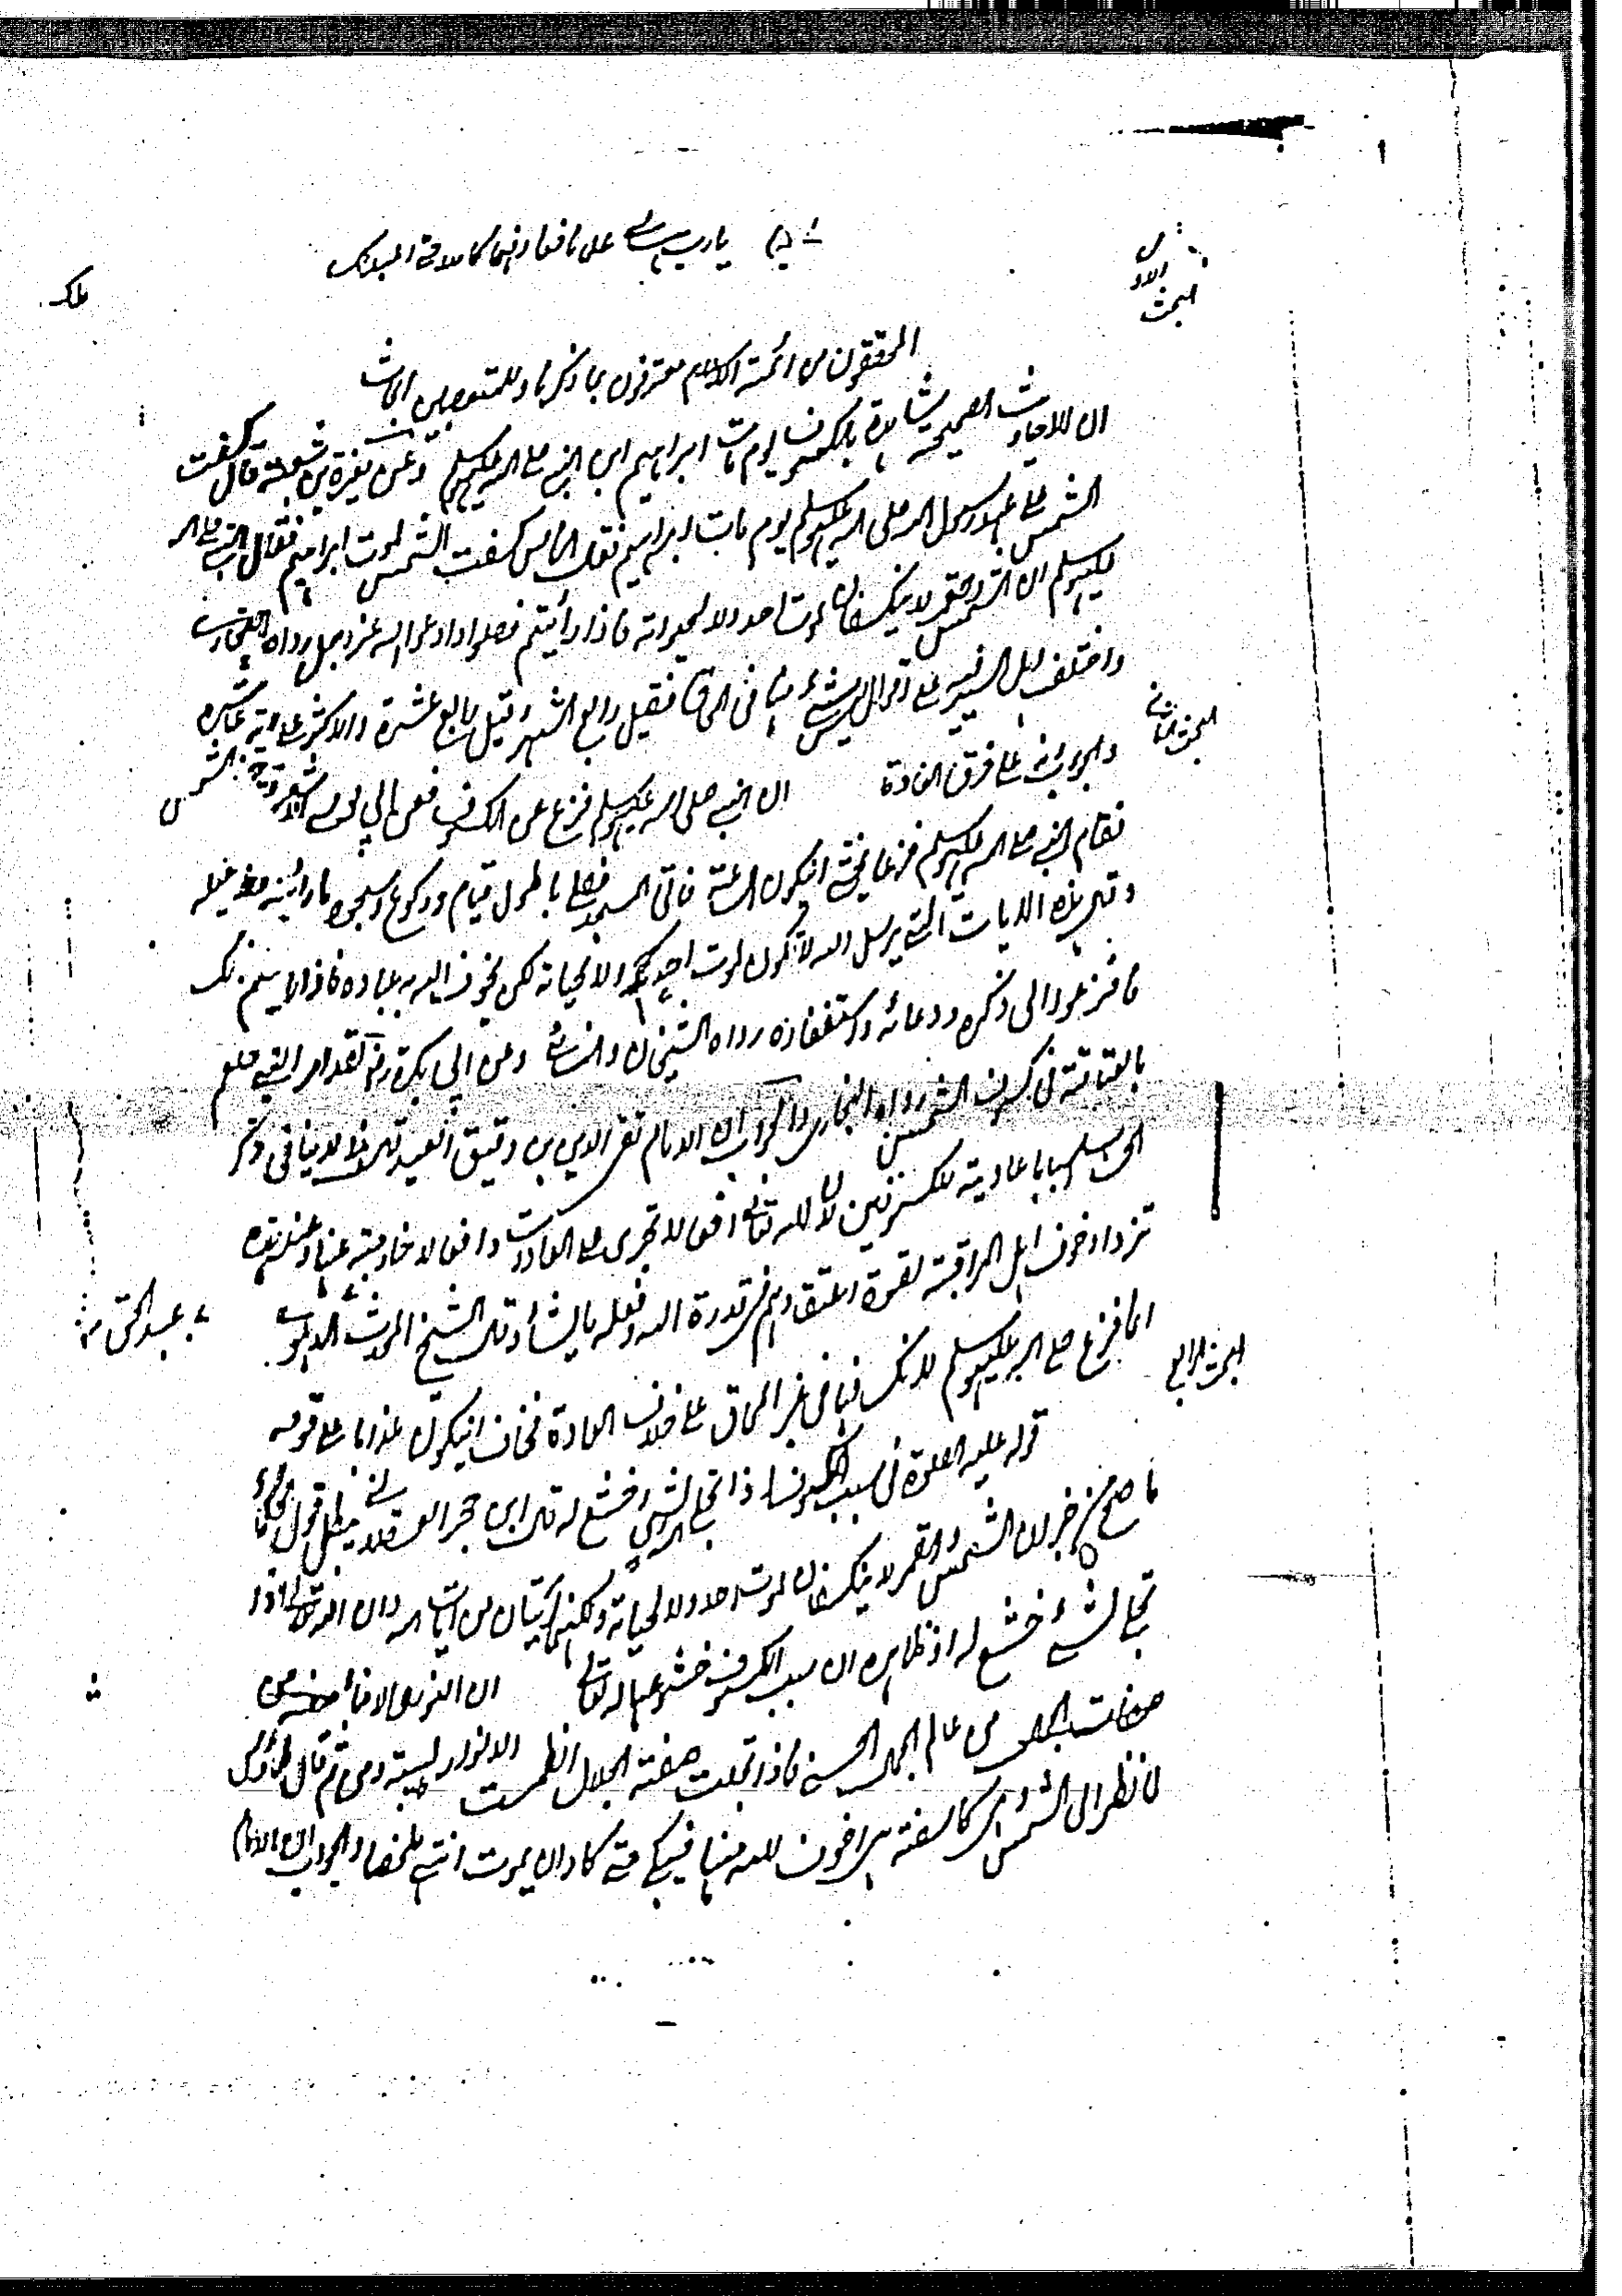 البحث الاول
المحققون من ائمة الكلام معترفون بما ذكرنا وللمتعصبين ابحاث
ان الاحاديث الصحيحة شاهدة بالكسوف يوم مات ابراهيم ابن النبي صلى الله عليه وسلم وعن مغيرة بن شعبة قال كسفت
الشمس على عهد رسول الله صلى الله عليه وسلم يوم مات ابراهيم فقال الناس كسفت الشمس لموت ابراهيم فقال النبي صلى الله
عليه وسلم ان الشمس والقمر لا ينكسفان لموت احد ولا لحيوته فاذا رأيتم فصلوا وادعوا الله عز وجل رواه البخاري
واختلف اهل السير فيه على اقوال ليس شئ منها في المحاق فقيل رابع الشهر وقيل رابع عشرة والاكثر على انه عاشره
البحث الثاني
والجواب انه على خرق العادة ان النبي صلى الله عليه وسلم فزع عن الكسوف فعن ابي موسى الاشعري قال خسفت الشمس
فقام النبي صلى الله عليه وسلم فزعا يخشى ان يكون الساعة فاتى المسجد فصلى باطول قيام وركوع وسجود ما رأيته قط يفعله
وقال هذه الايات التي يرسل الله لا تكون لموت احد ولا لحياته لكن يخوف الله به عباده فاذا رأيتم ذلك
فافزعوا الى ذكره ودعائه واستغفاره رواه الشيخان والنسائي وعن ابي بكر قال لقد امر النبي صلعم
بالعتاقة في كسوف الشمس رواه البخاري والجواب ان الامام تقي الدين بن دقيق العيد قال هذا لا ينافي ذكر
اهل اسبابا عادية للكسوفين لان لله تعالى افعالا تجري على العادات وافعالا خارجة عنها وعند هذه
تزداد خوف اهل المراقبة لقوة اعتقادهم في قدرة الله وفعله ما يشاء وقال الشيخ المحدث الدهلوي
عبد الحق
البحث الرابع
انما فزع صلى الله عليه وسلم لانكسافها في غير المحاق على خلاف العادة فخاف ان يكون عذابا على قومه
قوله عليه الصلوة في سبب الكسوف اذا تجلى الله لشئ خشع له قال ابن حجر العسقلاني يبطل قول
ما صح من خبر ان الشمس والقمر لا ينكسفان لموت احد ولا لحياته ولكنهما آيتان من آيات الله وان الله تعالى اذا
تجلى لشئ خشع له اذ ظاهره ان سبب الكسوف خشوعهما له تعالى ان النور والاضاءة من
صفات الجمال من عالم الجمال الحسي فاذا تجلت صفة الجلال انطمست الانوار لهيبته ومن ثم قال طاؤس
لما نظر الى الشمس وهي كاسفة هي اخوف لله منا فبكى حتى كاد ان يموت انتهى ملخصا والجواب ان الامام